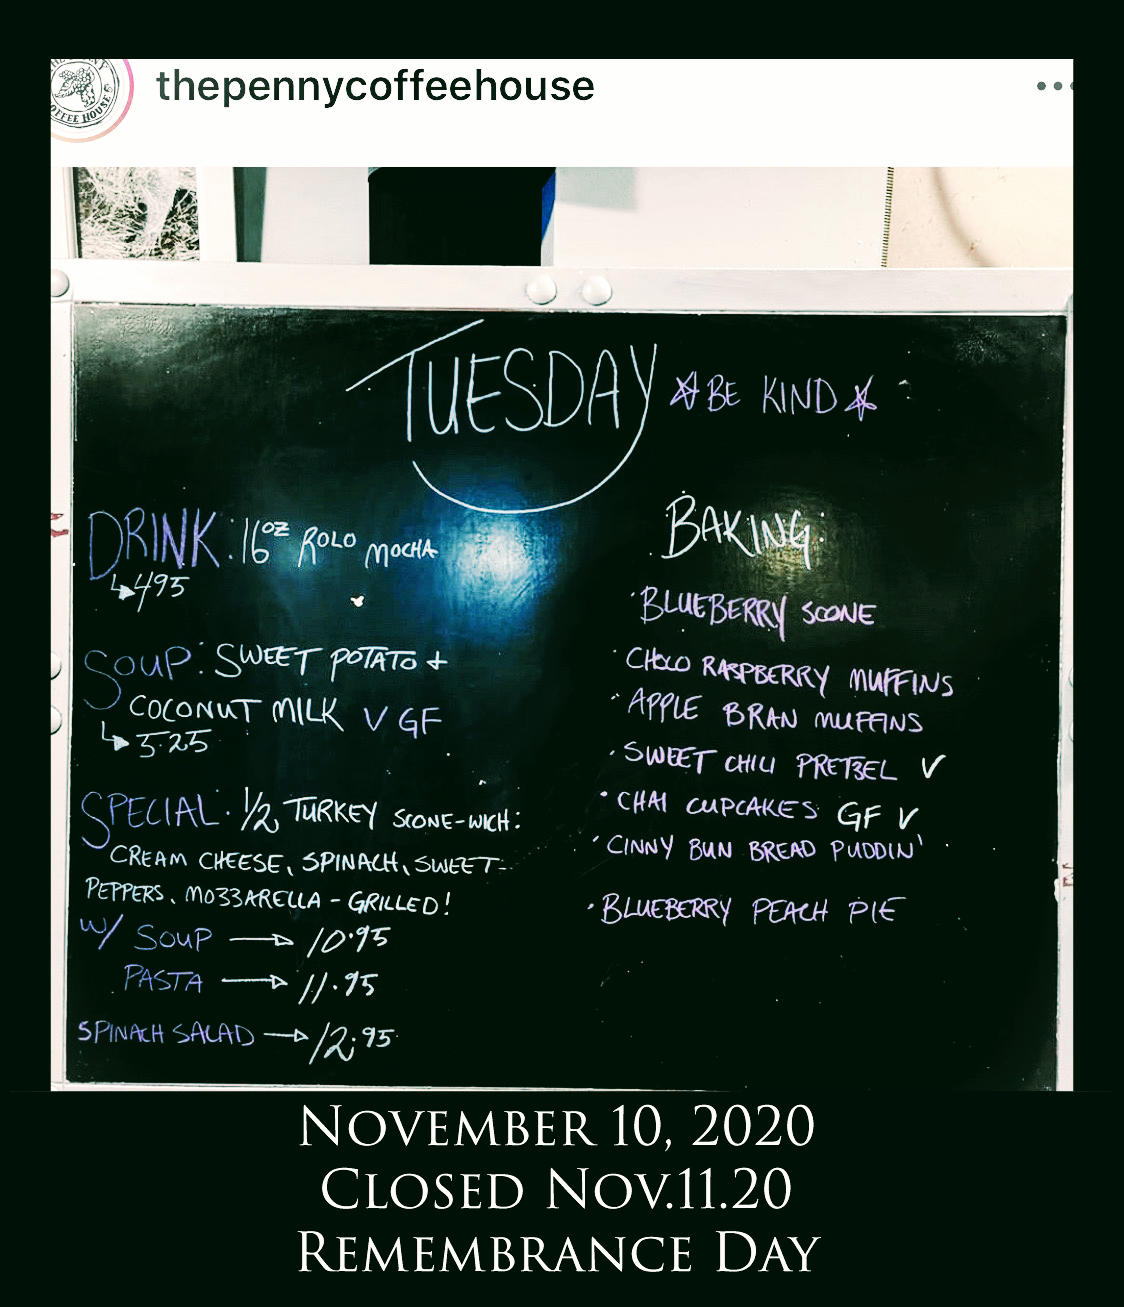 thepennycoffeehouse
COFFEE HOUSE
TUESDAY
BE KIND
DRINK: 16oz ROLO MOCHA
495
SOUP: SWEET POTATO +
COCONUT MILK V GF
5.25
SPECIAL: 1/2 TURKEY SCONE-WICH:
CREAM CHEESE, SPINACH, SWEET
PEPPERS, MOZZARELLA - GRILLED!
W/ SOUP → 10.95
PASTA → 11.95
SPINACH SALAD → 12.95
BAKING:
· BLUEBERRY SCONE
· CHOCO RASPBERRY MUFFINS
· APPLE BRAN MUFFINS
· SWEET CHILI PRETZEL V
· CHAI CUPCAKES GF V
· CINNY BUN BREAD PUDDIN'
· BLUEBERRY PEACH PIE
November 10, 2020
Closed Nov.11.20
Remembrance Day